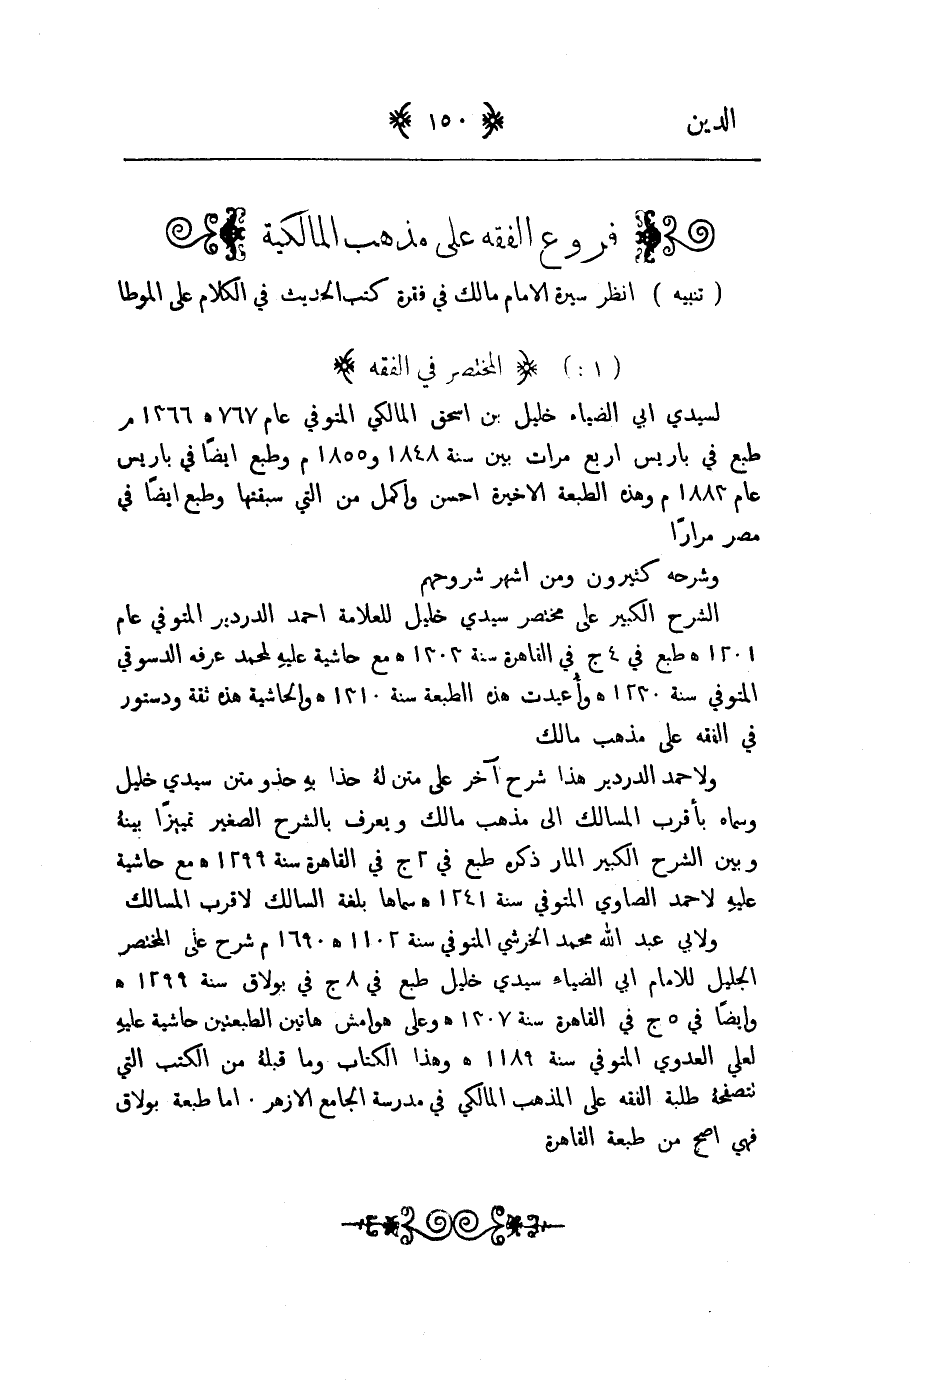 الدين ﴿ ١٥٠ ﴾
فروع الفقه على مذهب المالكية
( تنبيه ) انظر سيرة الامام مالك في فقرة كتب الحديث في الكلام على الموطا
( ١ : ) ﴿ المختصر في الفقه ﴾
لسيدي ابي الضياء خليل بن اسحق المالكي المتوفي عام ٧٦٧ ه ١٣٦٦ م
طبع في باريس اربع مرات بين سنة ١٨٤٨ و١٨٥٥ م وطبع ايضًا في باريس
عام ١٨٨٣ م وهذه الطبعة الاخيرة احسن واكمل من التي سبقتها وطبع ايضًا في
مصر مرارًا
وشرحه كثيرون ومن أشهر شروحهم
الشرح الكبير على مختصر سيدي خليل للعلامة احمد الدردير المتوفي عام
١٢٠١ ه طبع في ٤ ج في القاهرة سنة ١٣٠٣ ه مع حاشية عليهِ لمحمد عرفه الدسوقي
المتوفي سنة ١٢٣٠ ه وأُعيدت هذه الطبعة سنة ١٣١٠ ه والحاشية هذه ثقة ودستور
في الفقه على مذهب مالك
ولاحمد الدردير هذا شرح آخر على متن لهُ حذا بهِ حذو متن سيدي خليل
وسماه بأقرب المسالك الى مذهب مالك ويعرف بالشرح الصغير تمييزًا بينهُ
وبين الشرح الكبير المار ذكره طبع في ٢ ج في القاهرة سنة ١٢٩٩ ه مع حاشية
عليهِ لاحمد الصاوي المتوفي سنة ١٢٤١ ه سماها بلغة السالك لاقرب المسالك
ولابي عبد الله محمد الخرشي المتوفي سنة ١١٠٢ ه ١٦٩٠ م شرح على المختصر
الجليل للامام ابي الضياء سيدي خليل طبع في ٨ ج في بولاق سنة ١٢٩٩ ه
وايضًا في ٥ ج في القاهرة سنة ١٣٠٧ ه وعلى هوامش هاتين الطبعتين حاشية عليهِ
لعلي العدوي المتوفي سنة ١١٨٩ ه وهذا الكتاب وما قبلهُ من الكتب التي
تتصفحهُ طلبة الفقه على المذهب المالكي في مدرسة الجامع الازهر ٠ اما طبعة بولاق
فهي اصح من طبعة القاهرة